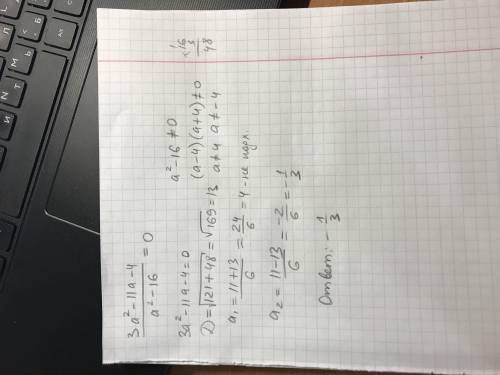 3a² - 11a - 4
───────── = 0
a² - 16
3a² - 11a - 4 = 0
a² - 16 ≠ 0
(a - 4)(a + 4) ≠ 0
a ≠ 4 a ≠ -4
D = √121 + 48 = √169 = 13
a₁ = (11 + 13)/6 = 24/6 = 4 - не подх.
a₂ = (11 - 13)/6 = -2/6 = -1/3
Ответ: -1/3
1
×16
3
48